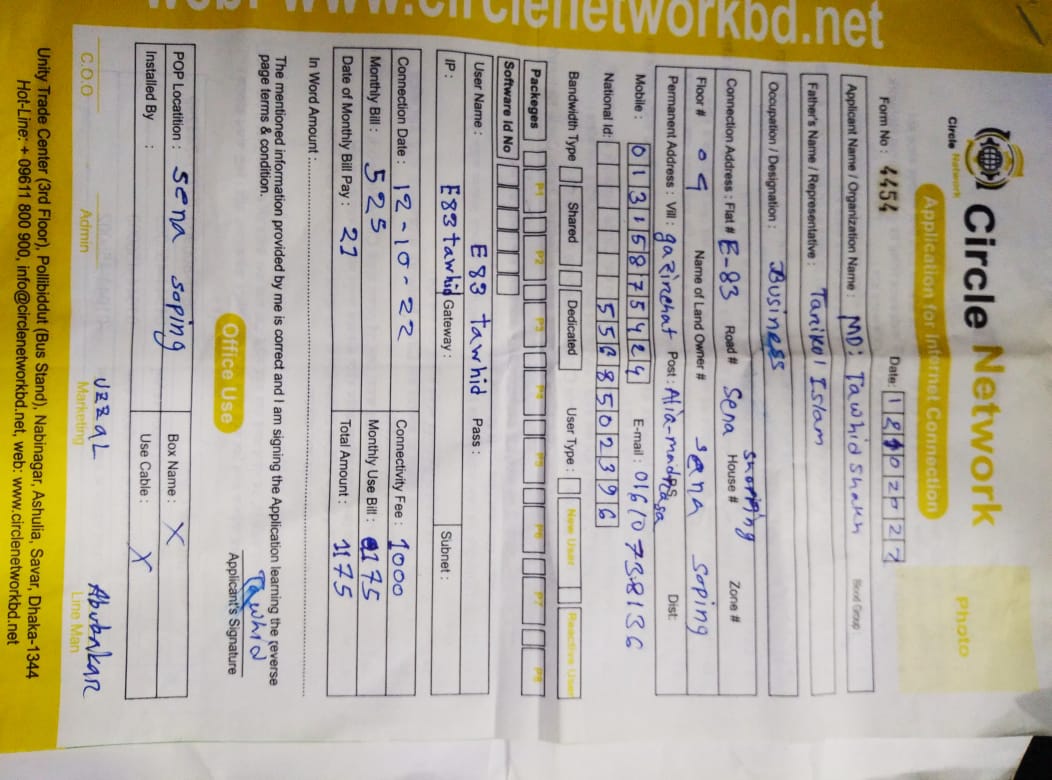 web: www.circlenetworkbd.net
Circle Network
Circle Network
Application for Internet Connection
Photo
Form No : 4454
Date: 18102022
Applicant Name / Organization Name : MD: Tawhid shaun Blood Group
Father's Name / Representative : Tarikul Islam
Occupation / Designation : Business
Connection Address : Flat # E-83 Road # Sena House # shopping Zone #
Floor # 04 Name of Land Owner # sena soping
Permanent Address : Vill : gazirchat Post : Alia-madrasa P.S Dist:
Mobile : 01315875424 E-mail : 01610738136
National Id: 5568502396
Bandwidth Type Shared Dedicated User Type : New User Reactive User
Packeges P1 P2 P3 P4 P5 P6 P7 P8
Software Id No
User Name : E83 tawhid Pass :
IP : E83tawhid Gateway : Subnet :
Connection Date : 12-10-22 Connectivity Fee : 1000
Monthly Bill : 525 Monthly Use Bill : 175
Date of Monthly Bill Pay : 21 Total Amount : 1175
In Word Amount :
The mentioned information provided by me is correct and I am signing the Application learning the reverse
page terms & condition.
Tawhid
Applicant's Signature
Office Use
POP Locatition : Sena soping Box Name : X
Installed By : Use Cable : X
Uzzal Abubakar
C.O.O Admin Marketing Line Man
Unity Trade Center (3rd Floor), Pollibiddut (Bus Stand), Nabinagar, Ashulia, Savar, Dhaka-1344
Hot-Line: + 09611 800 900, info@circlenetworkbd.net, web: www.circlenetworkbd.net